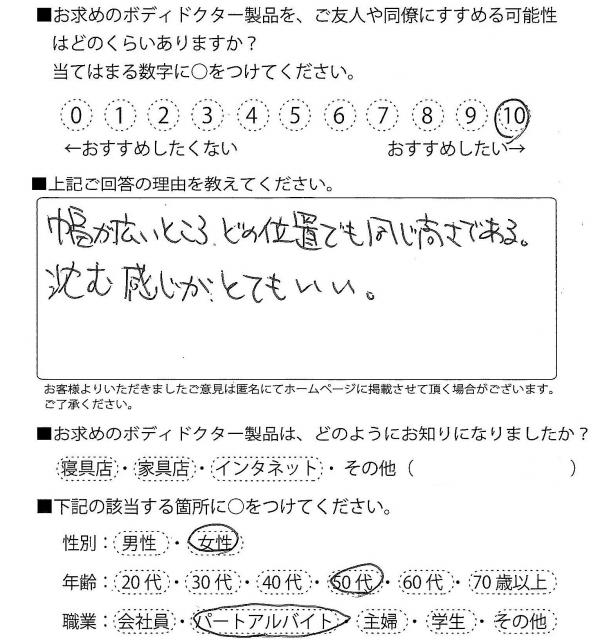 ■お求めのボディドクター製品を、ご友人や同僚にすすめる可能性
はどのくらいありますか？
当てはまる数字に○をつけてください。
0 1 2 3 4 5 6 7 8 9 10
←おすすめしたくない おすすめしたい→
■上記ご回答の理由を教えてください。
幅が広いところ、どの位置でも同じ高さである。
沈む感じが、とてもいい。
お客様よりいただきましたご意見は匿名にてホームページに掲載させて頂く場合がございます。
ご了承ください。
■お求めのボディドクター製品は、どのようにお知りになりましたか？
寝具店・家具店・インタネット・その他（ ）
■下記の該当する箇所に○をつけてください。
性別：男性・女性
年齢：20代・30代・40代・50代・60代・70歳以上
職業：会社員・パートアルバイト・主婦・学生・その他